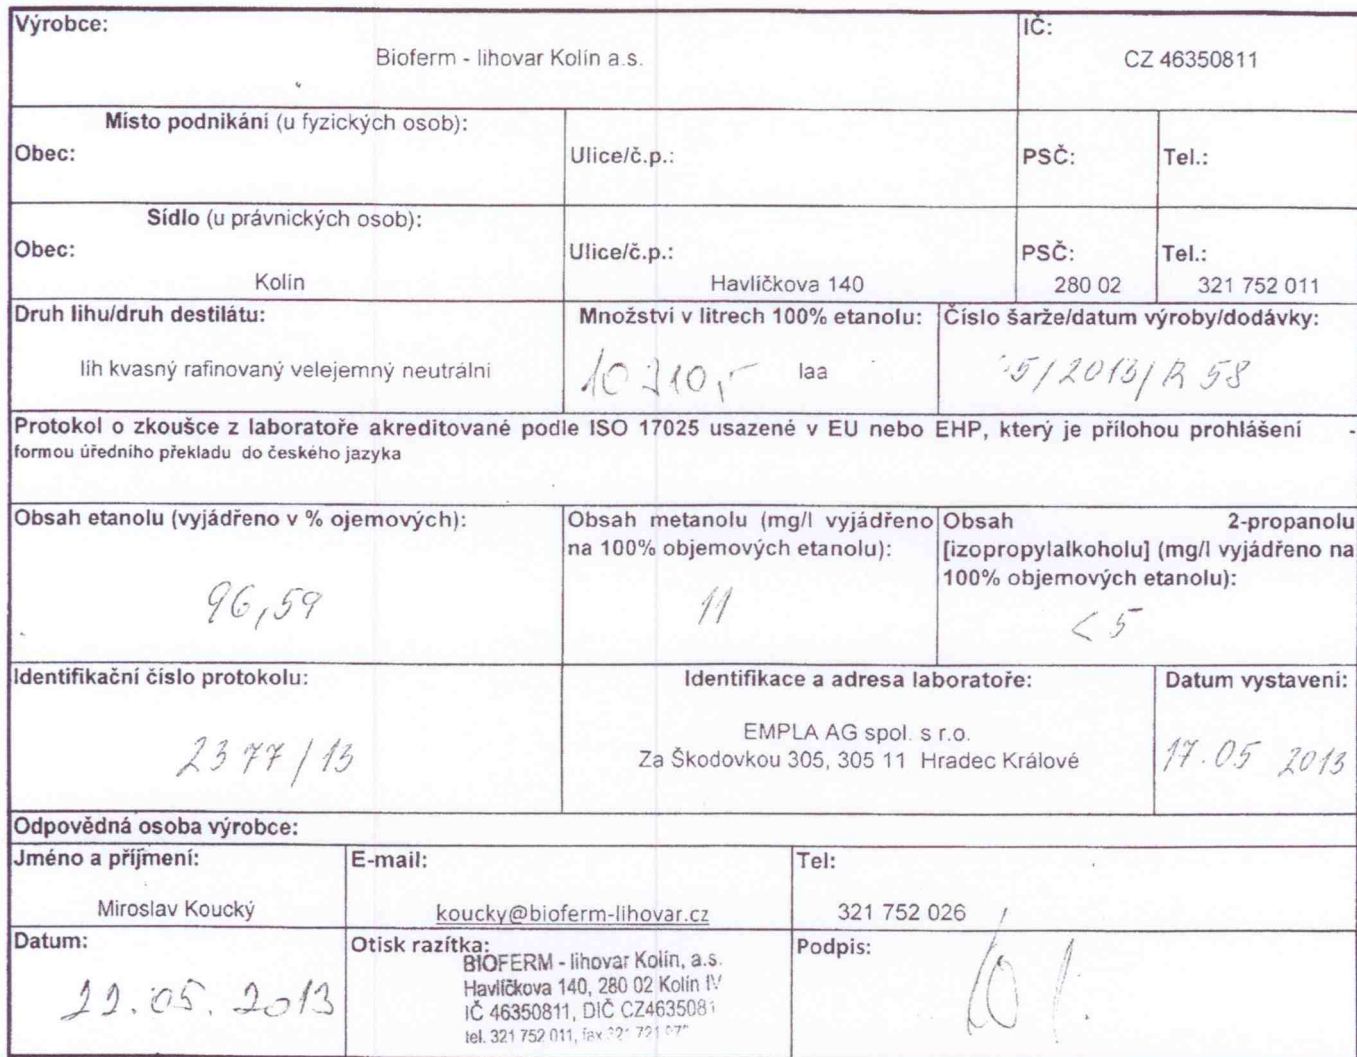 Výrobce:
Bioferm - lihovar Kolín a.s.
IČ:
CZ 46350811
Místo podnikání (u fyzických osob):
Obec:
Ulice/č.p.:
PSČ:
Tel.:
Sídlo (u právnických osob):
Obec:
Kolín
Ulice/č.p.:
Havlíčkova 140
PSČ:
280 02
Tel.:
321 752 011
Druh lihu/druh destilátu:
líh kvasný rafinovaný velejemný neutrální
Množství v litrech 100% etanolu:
laa
Číslo šarže/datum výroby/dodávky:
5/2013/R 58
Protokol o zkoušce z laboratoře akreditované podle ISO 17025 usazené v EU nebo EHP, který je přílohou prohlášení -
formou úředního překladu do českého jazyka
Obsah etanolu (vyjádřeno v % ojemových):
96,59
Obsah metanolu (mg/l vyjádřeno
na 100% objemových etanolu):
11
Obsah 2-propanolu
[izopropylalkoholu] (mg/l vyjádřeno na
100% objemových etanolu):
< 5
Identifikační číslo protokolu:
2377/13
Identifikace a adresa laboratoře:
EMPLA AG spol. s r.o.
Za Škodovkou 305, 305 11 Hradec Králové
Datum vystavení:
17.05 2013
Odpovědná osoba výrobce:
Jméno a příjmení:
Miroslav Koucký
E-mail:
koucky@bioferm-lihovar.cz
Tel:
321 752 026
Datum:
22.05.2013
Otisk razítka:
BIOFERM - lihovar Kolín, a.s.
Havlíčkova 140, 280 02 Kolín IV
IČ 46350811, DIČ CZ4635081
tel. 321 752 011, fax 321 721
Podpis: